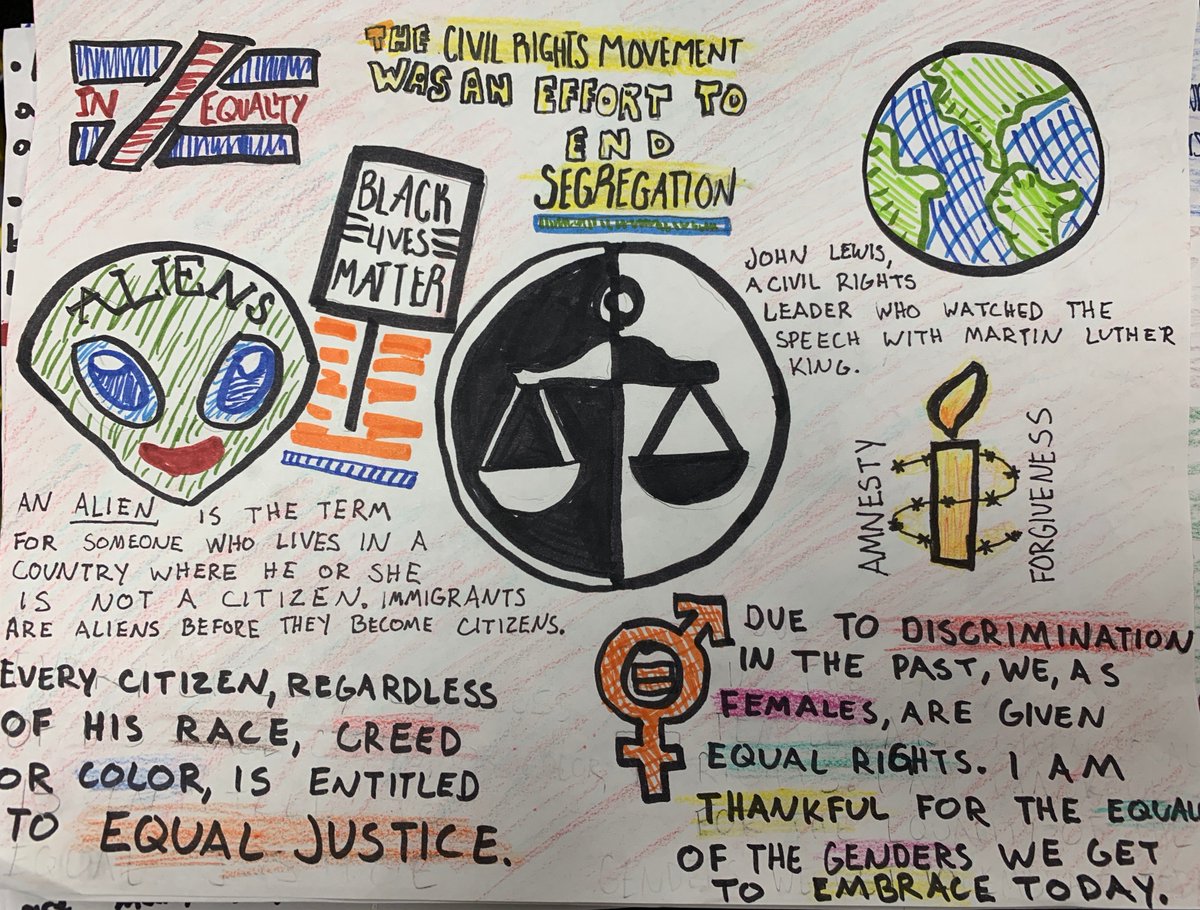 IN EQUALTY
THE CIVIL RIGHTS MOVEMENT
WAS AN EFFORT TO
END
SEGREGATION
BLACK
LIVES
MATTER
ALIENS
JOHN LEWIS,
A CIVIL RIGHTS
LEADER WHO WATCHED THE
SPEECH WITH MARTIN LUTHER
KING.
AMNESTY
FORGIVENESS
AN ALIEN IS THE TERM
FOR SOMEONE WHO LIVES IN A
COUNTRY WHERE HE OR SHE
IS NOT A CITIZEN. IMMIGRANTS
ARE ALIENS BEFORE THEY BECOME CITIZENS.
EVERY CITIZEN, REGARDLESS
OF HIS RACE, CREED
OR COLOR, IS ENTITLED
TO EQUAL JUSTICE.
DUE TO DISCRIMINATION
IN THE PAST, WE, AS
FEMALES, ARE GIVEN
EQUAL RIGHTS. I AM
THANKFUL FOR THE EQUAL
OF THE GENDERS WE GET
TO EMBRACE TODAY.